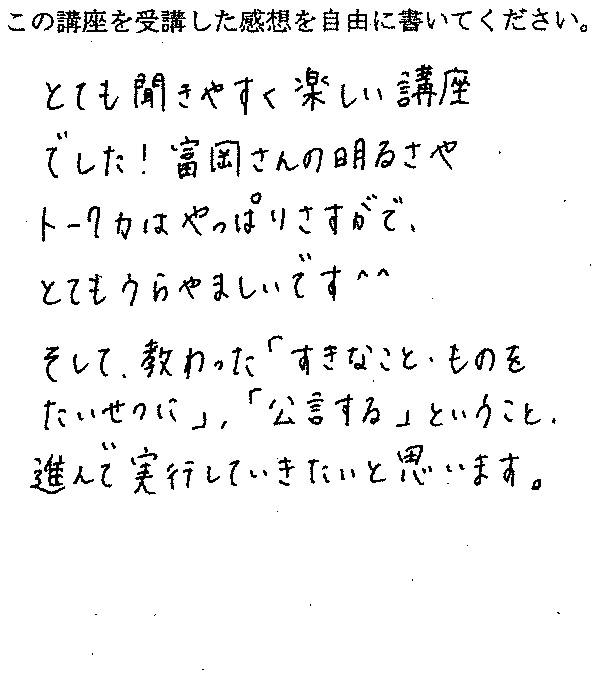 この講座を受講した感想を自由に書いてください。
とても聞きやすく楽しい講座
でした！富岡さんの明るさや
トーク力はやっぱりさすがで、
とてもうらやましいです^^
そして、教わった「すきなこと・ものを
たいせつに」,「公言する」ということ、
進んで実行していきたいと思います。